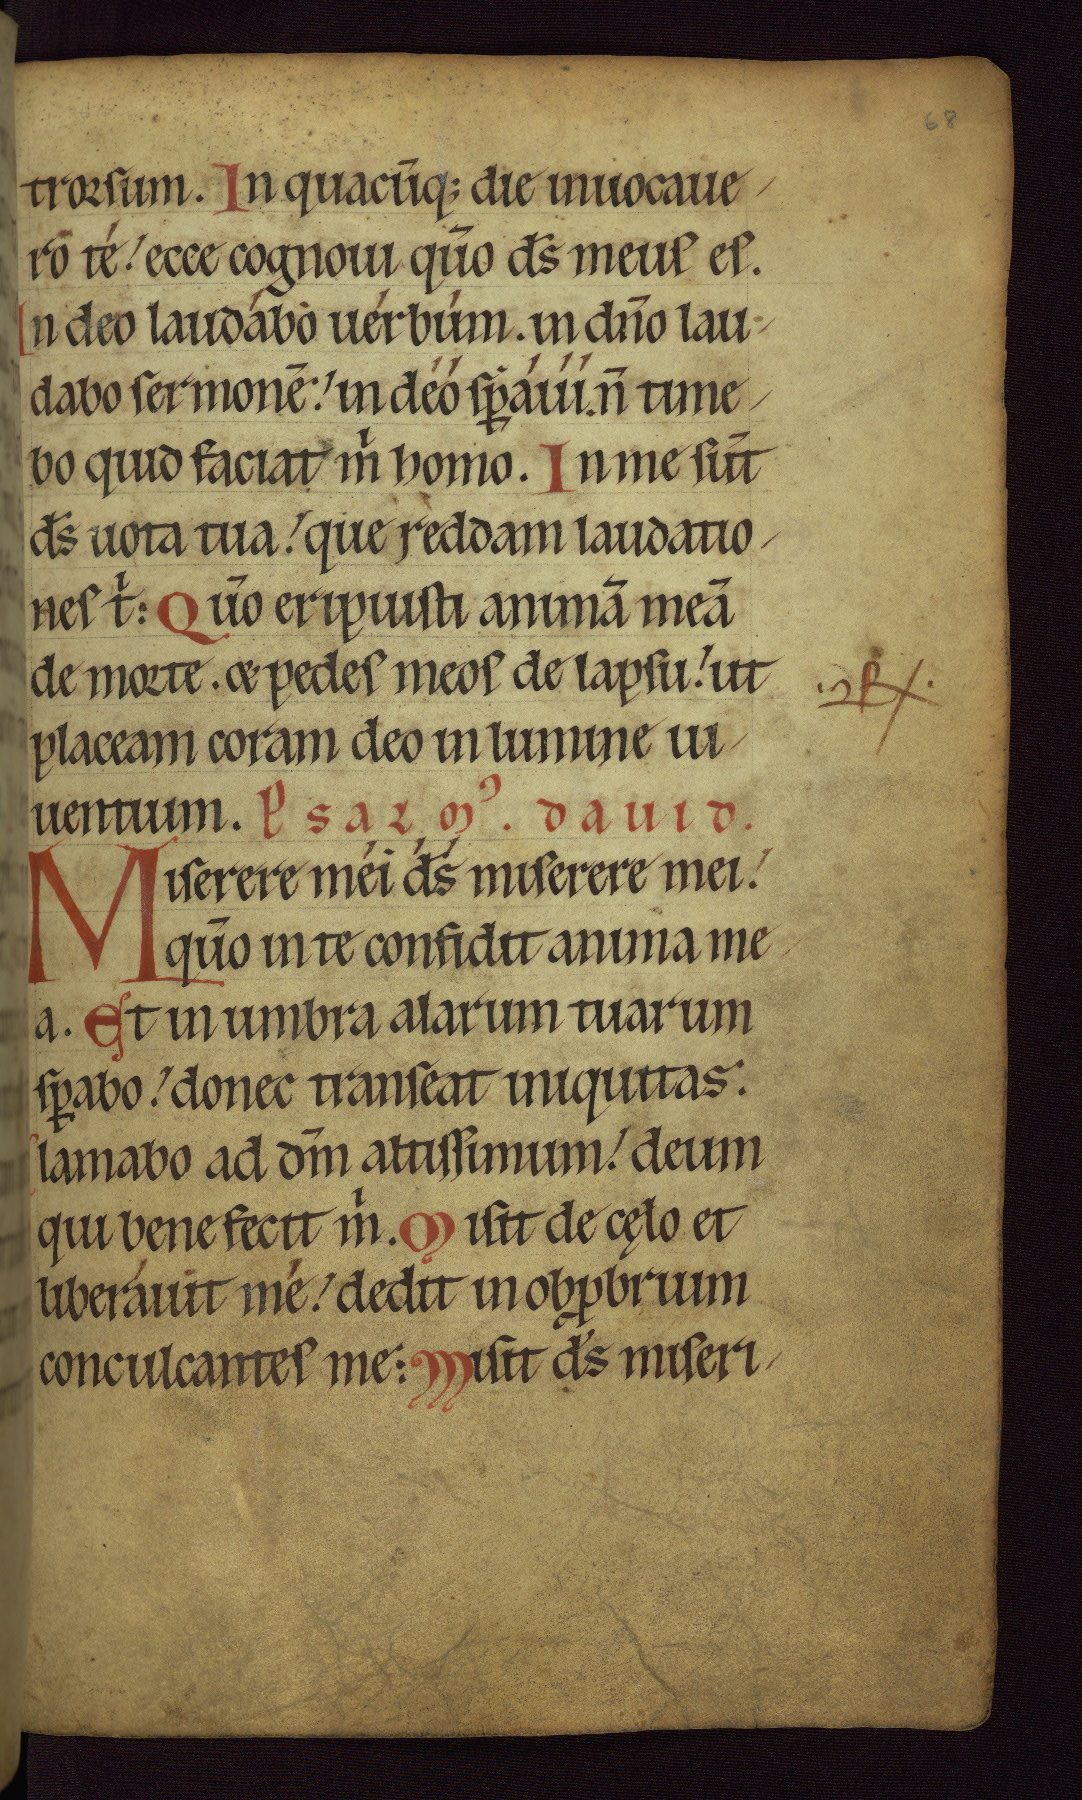 68
trorsum. In quacūq; die inuocaue-
ro té! ecce cognoui qūo d̄s meus es.
In deo laudábo uérbúm. in dn̄o lau-
dabo sermonē! in déó sꝑáuí. n̄ time-
bo quid faciat m̄ homo. In me sūt
d̄s uota tua! que reddam laudatio-
nes t̄: Qūo eripuisti animā meā
de morte. & pedes meos de lapsu! ut
placeam coram deo in lumine ui-
uentium. Psalmꝰ. dauid.
Miserere méi d̄s miserere mei!
qūo in te confidit anima me
a. Et in umbra alarum tuarum
sꝑabo! donec transeat iniquitas.
lamabo ad dm̄ altissimum! deum
qui bene fecit m̄. Misit de cęlo et
liberáuit mé! dedit in obꝓbrium
conculcantes me: Misit d̄s miseri-